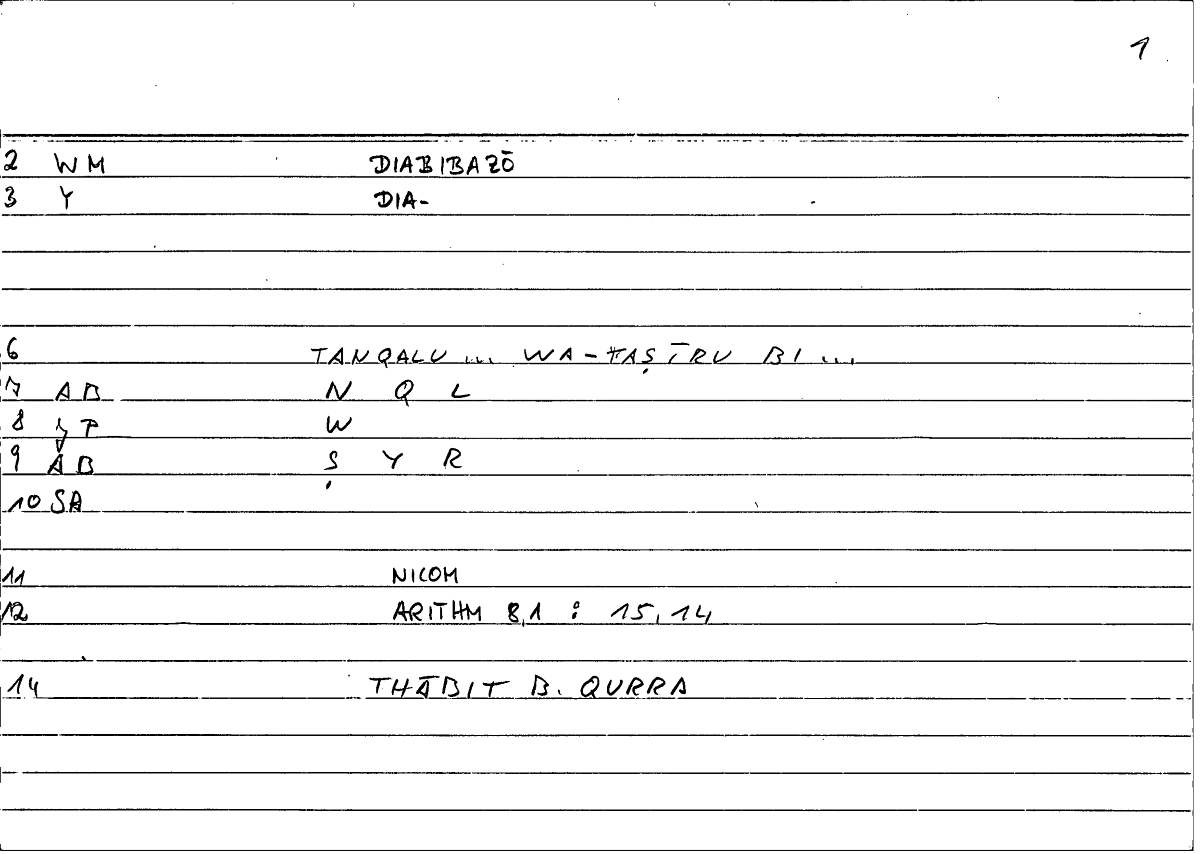 1
2 WM DIABIBAZŌ
3 Y DIA-
6 TANQALU ... WA-TAṢĪRU BI ...
7 AB N Q L
8 P W
9 AB Ṣ Y R
10 SA
11 NICOM
12 ARITHM 8,1 : 15,14
14 THĀBIT B. QURRA